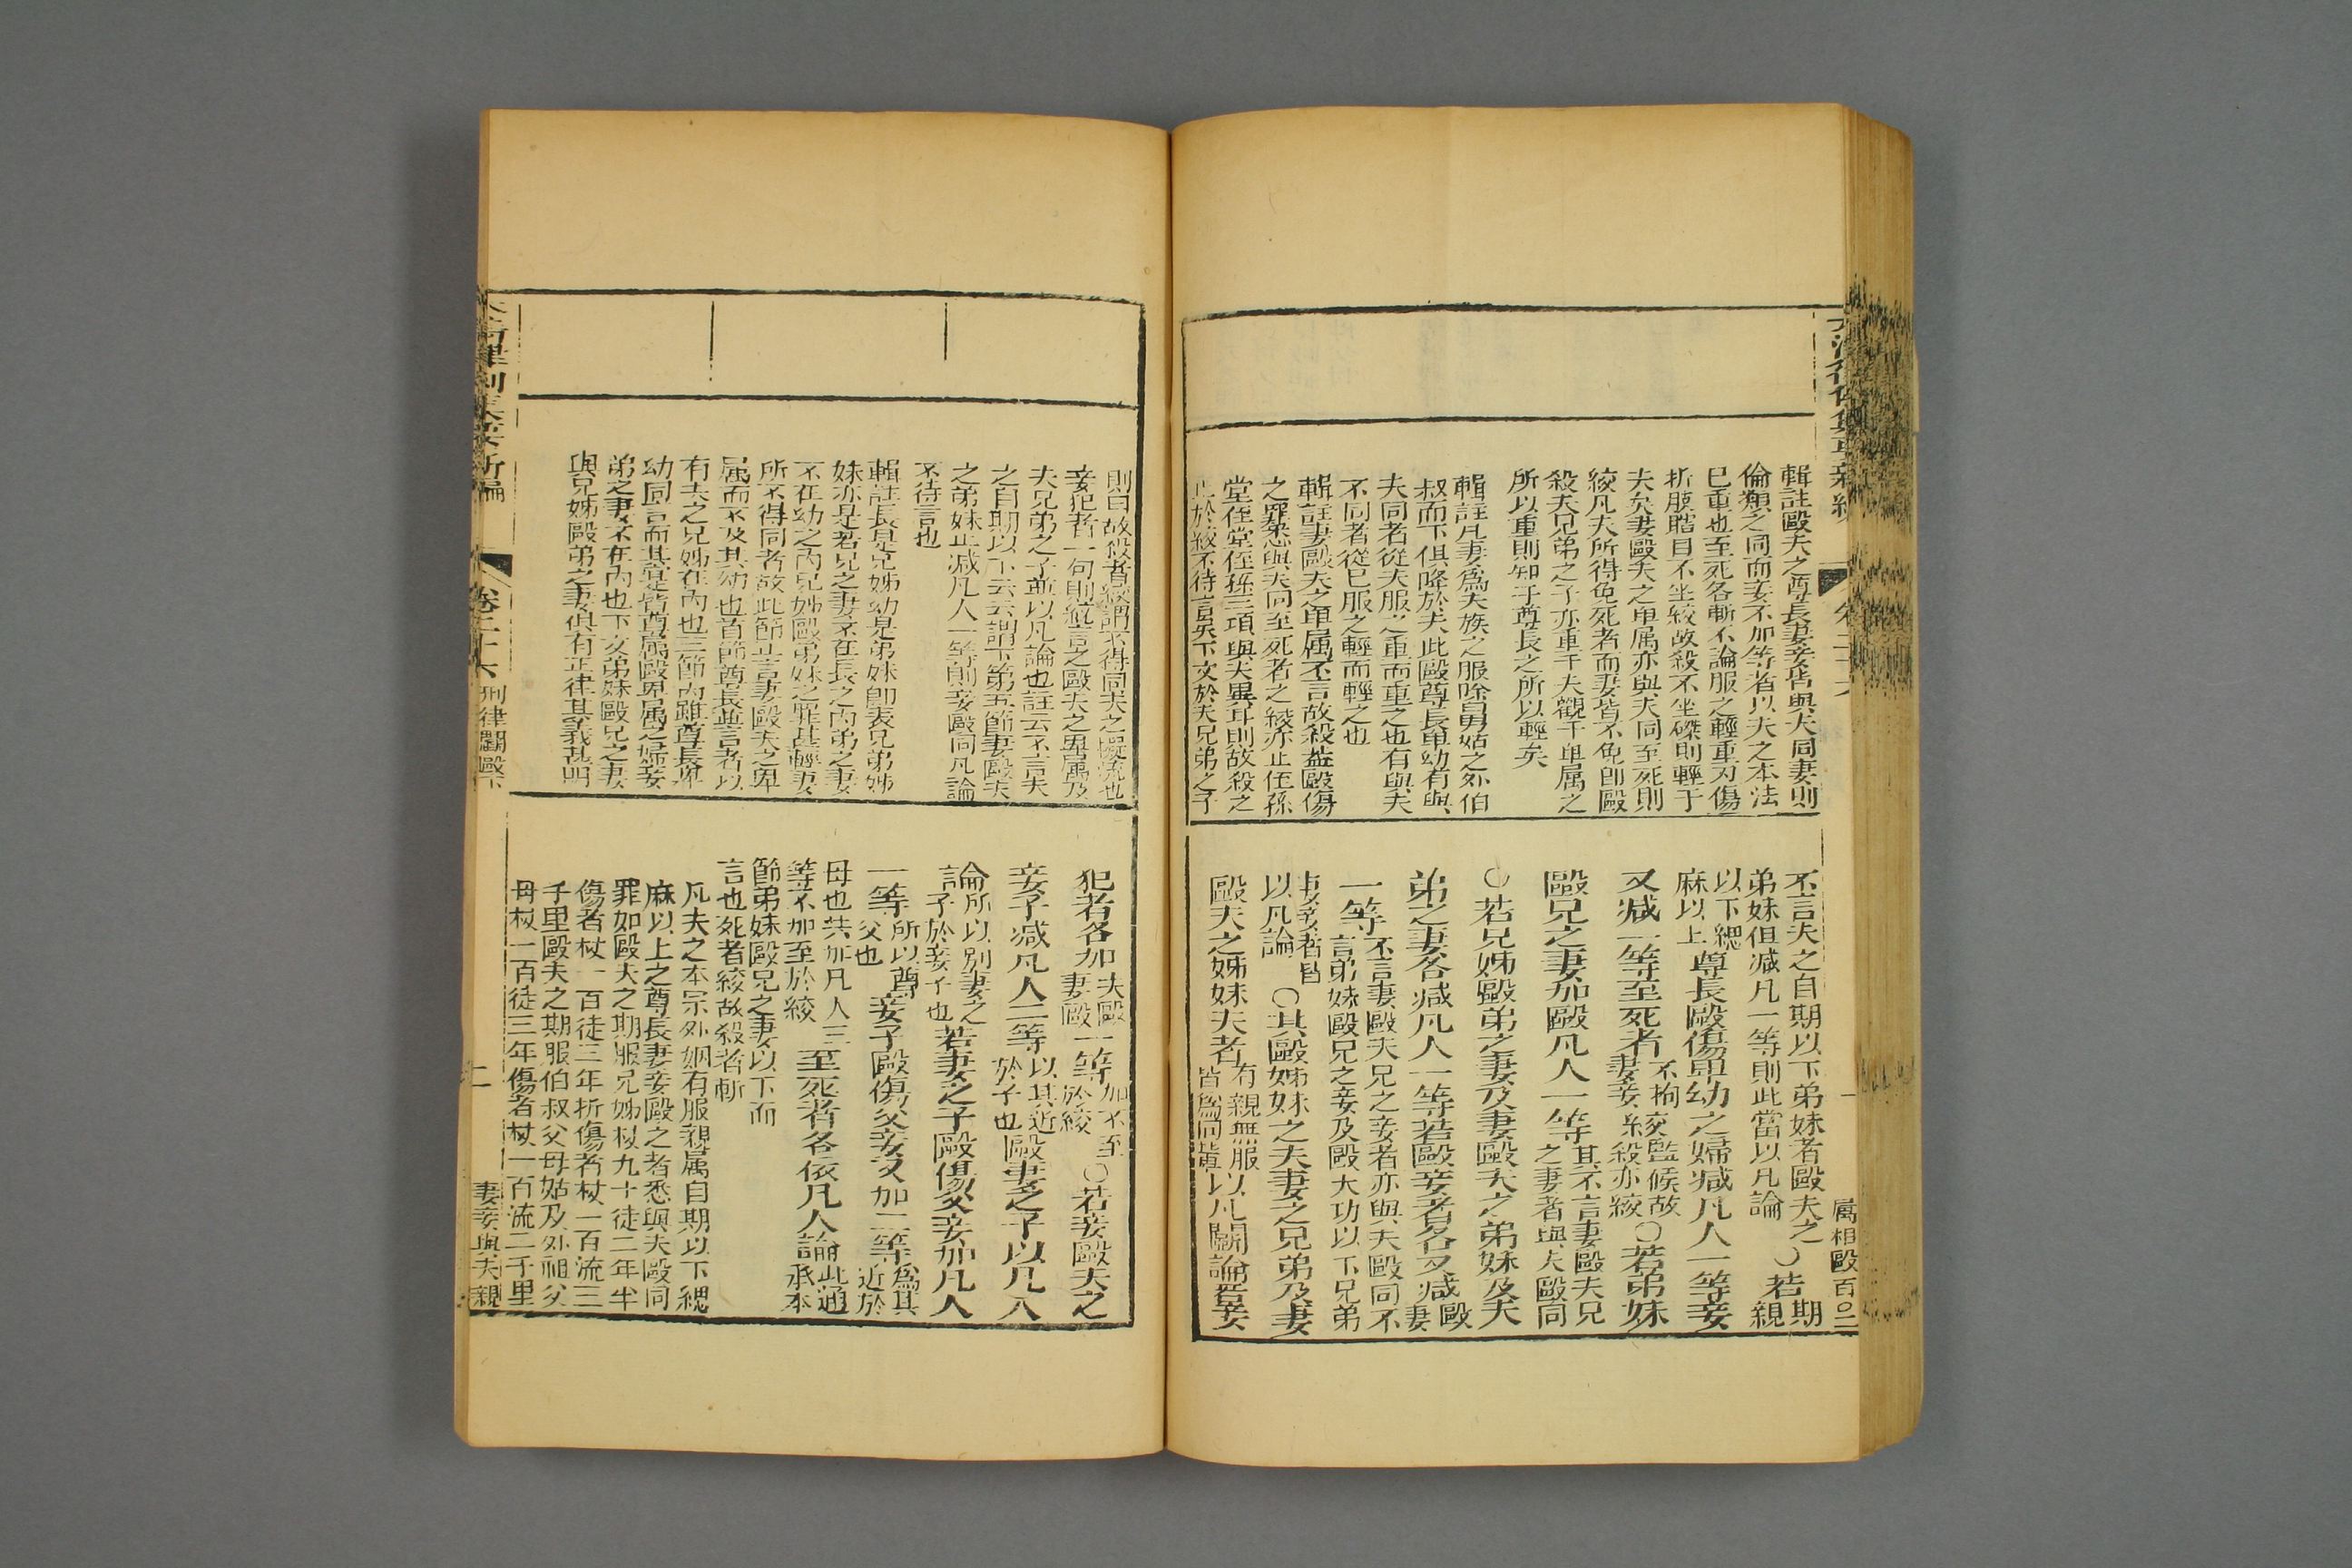 輯註毆夫之尊長妻妾皆與夫同妻則
倫類之同而妾不加等者以夫之本法
已重也至死各斬不論服之輕重刃傷
折肢瞎目不坐絞故殺不坐磔則輕于
夫矣妻毆夫之卑属亦與夫同至死則
絞凡夫所得免死者而妻皆不免卽毆
殺夫兄弟之子亦重于夫觀于卑属之
所以重則知于尊長之所以輕矣
輯註凡妻爲夫族之服除舅姑之外伯
叔而下俱降於夫此毆尊長卑幼有與
夫同者從夫服之重而重之也有與夫
不同者從已服之輕而輕之也
輯註妻毆夫之卑属不言故殺盖毆傷
之罪悉與夫同至死者之絞亦止侄孫
堂侄堂侄孫三項與夫異耳則故殺之
止於絞不待言矣下文於夫兄弟之子
不言夫之自期以下弟妹者毆夫之
弟妹但减凡一等則此當以凡論
〇若期親
以下緦
麻以上
尊長毆傷卑幼之婦减凡人一等妾
又减一等至死者
不拘
妻妾
絞監候故
殺亦絞
〇若弟妹
毆兄之妻加毆凡人一等
其不言妻毆夫兄
之妻者與夫毆同
〇若兄姊毆弟之妻及妻毆夫之弟妹及夫
弟之妻各减凡人一等若毆妾者各又减
毆
妻
一等
不言妻毆夫兄之妾者亦與夫毆同不
言弟妹毆兄之妾及毆大功以下兄弟
妻妾者皆
以凡論
〇其毆姊妹之夫妻之兄弟及妻
毆夫之姊妹夫者
有親無服
皆爲同輩
以凡鬪論若妾
属相毆
大清律例集要新編
卷二十六
則曰故殺者絞謂不得同夫之擬流也
妾犯者一句則統言之毆夫之卑属及
夫兄弟之子並以凡論也註云不言夫
之自期以下云云謂下第五節妻毆夫
之弟妹止减凡人一等則妾毆同凡論
不待言也
輯註長是兄姊幼是弟妹卽表兄弟姊
妹亦是若兄之妻不在長之内弟之妻
不在幼之内兄姊毆弟妹之罪甚輕妻
所不得同者故此節止言妻毆夫之卑
属而不及其幼也首節尊長並言者以
有夫之兄姊在内也三節内雖尊長卑
幼同言而其實皆尊属毆卑属之婦妾
弟之妻不在内也下文弟妹毆兄之妻
與兄姊毆弟之妻俱有正律其義甚明
犯者各加
夫毆
妻毆
一等
加不至
於絞
〇若妾毆夫之
妾子减凡人二等
以其近
於子也
毆妻之子以凡人
論
所以别妻之
子於妾子也
若妻之子毆傷父妾加凡人
一等
所以尊
父也
妾子毆傷父妾又加二等
爲其
近於
母也共加凡人三
等不加至於絞
至死者各依凡人論
此通
承本
節弟妹毆兄之妻以下而
言也死者絞故殺者斬
凡夫之本宗外姻有服親属自期以下緦
麻以上之尊長妻妾毆之者悉與夫毆同
罪如毆夫之期服兄姊杖九十徒二年半
傷者杖一百徒三年折傷者杖一百流三
千里毆夫之期服伯叔父母姑及外祖父
母杖一百徒三年傷者杖一百流二千里
大清律例集要新編
卷二十六
刑律鬬毆下
二
妻妾與夫親